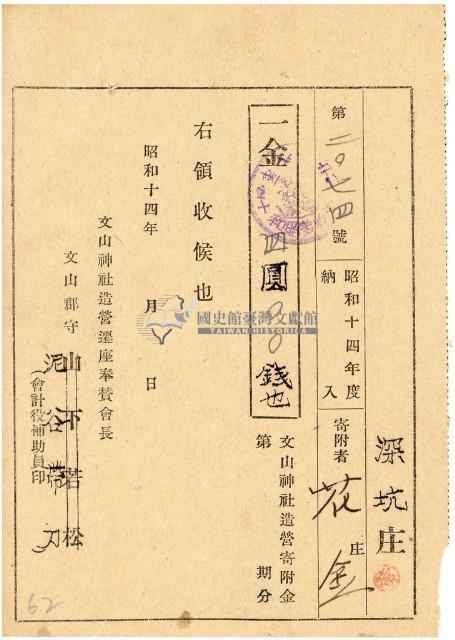 深坑庄
第二〇七四號
昭和十四年度
納入
寄附者
庄
花金
一金四圓〇〇錢也
文山神社造營寄附金
第 期分
右領收候也
昭和十四年 月 日
文山神社造營遷座奉賛會長
文山郡守 山下若松
泥谷帶刀
(會計役補助員印)
國史館臺灣文獻館
TAIWAN HISTORICA
62